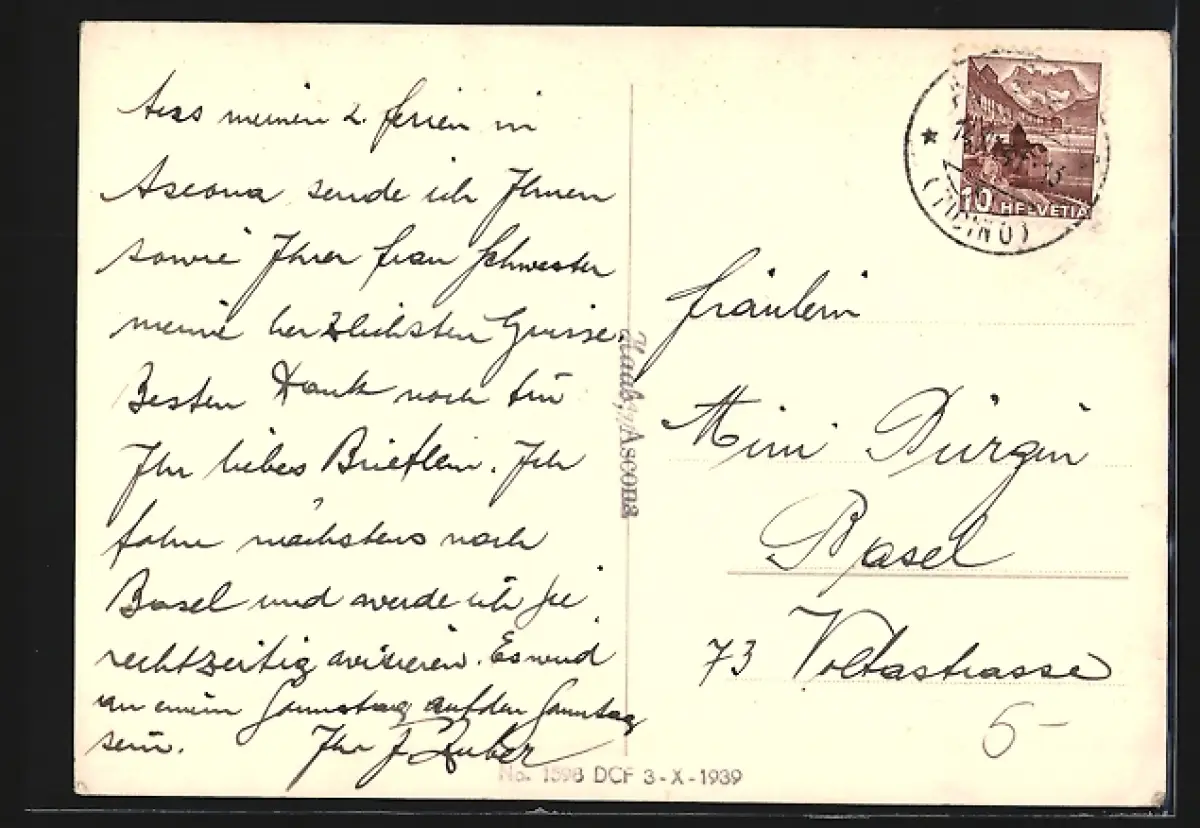 Aus meinen 2. Ferien in
Ascona sende ich Ihnen
sowie Ihrer Frau Schwester
meine herzlichsten Grüsse.
Besten Dank noch für
Ihr liebes Brieflein. Ich
fahre nächstens nach
Basel und werde ich Sie
rechtzeitig avisieren. Es wird
an einem Samstag auf den Sonntag
sein. Ihr J.
Haab, Ascona
No. 1598 DCF 3-X-1939
10 HELVETIA
(TICINO)
Fräulein
Mimi Dürgin
Basel
73 Voltastrasse
6-